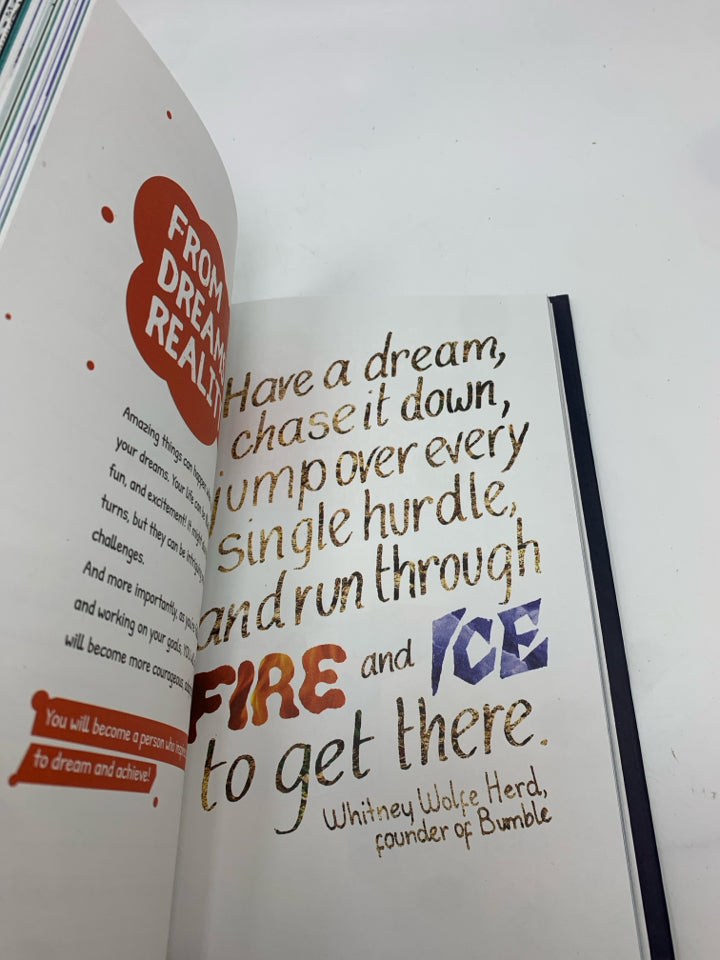 FROM
DREAM
REALIT
Amazing things can happen
your dreams. Your life can be
fun, and excitement! It might
turns, but they can be intriguing
challenges.
And more importantly, as you're
and working on your goals, YOU
will become more courageous,
You will become a person who
to dream and achieve!
Have a dream,
chase it down,
jump over every
single hurdle,
and run through
FIRE and ICE
to get there.
Whitney Wolfe Herd,
founder of Bumble